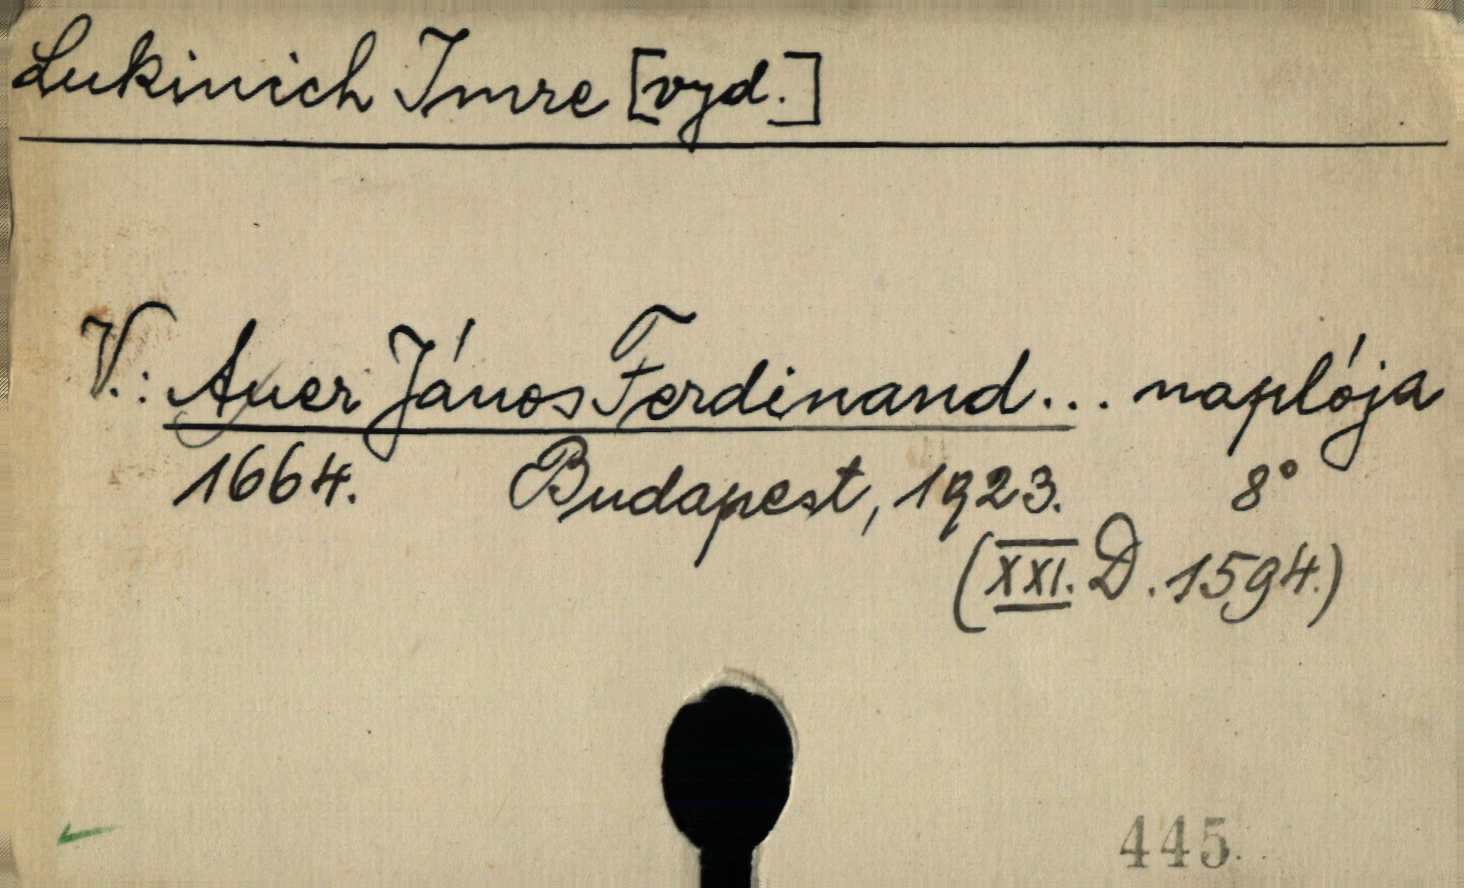 Lukinich Imre [vyd.]
V.: Auer János Ferdinand... naplója
1664. Budapest, 1923. 8°
(XXI. D. 1594.)
445